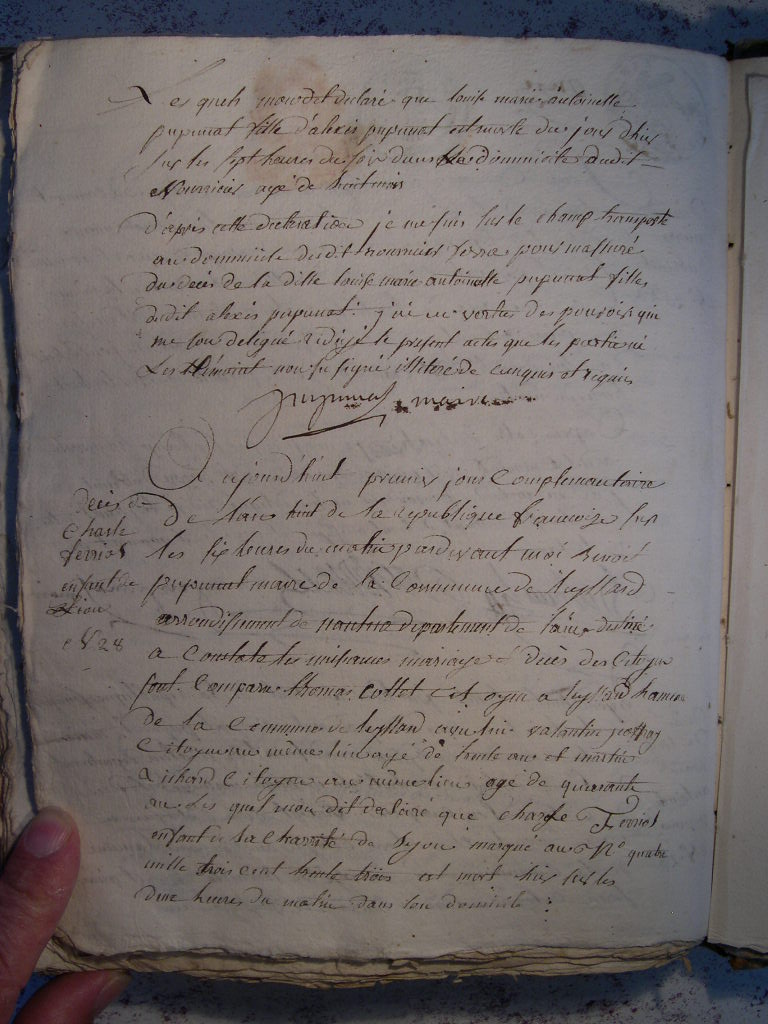 Les quels mon det declaré que louise marie antoinette
pupunat fille d'alexis pupunat est morte du jour d'hier
sur les sept heures du soir dans le domicile dudit
Nourricier agé de huit mois
d'apres cette declaration je me suis sur le champ transporté
au domicile dudit nourricier pour massuré
du deces de la ditte louise marie antoinette pupunat fille
dudit alexis pupunat. j'ai en vertu des pouvoirs qui
me son delegué redigé le present acte que les parties ni
Les témoint non su signé illiteré de enquis et requis
pupunat maire
Aujourd'huit premier jour Complementaire
de l'an huit de la republique francoise sur
les six heures du matin pardevant moi benoit
pupunat maire de la Commune de leyssard
arrondissement de nantua departement de l'ain destiné
a Constaté les naissances mariage et décès des Citoyen
sont Comparu thomas Collet Citoyen a leyssard hameau
de la Commune de leyssard avec lui valantin
Citoyen au même lieu agé de trente an et martin
Citoyen au même lieu agé de quarante
an Les quel mon dit declaré que Charle Ferriol
enfant de la Charité de Lyon marqué au N° quatre
mille trois cent trente trois est mort hier sur les
deux heures du matin dans son domicile
Décès de
Charle
ferriol
enfant de
Lion
N 28